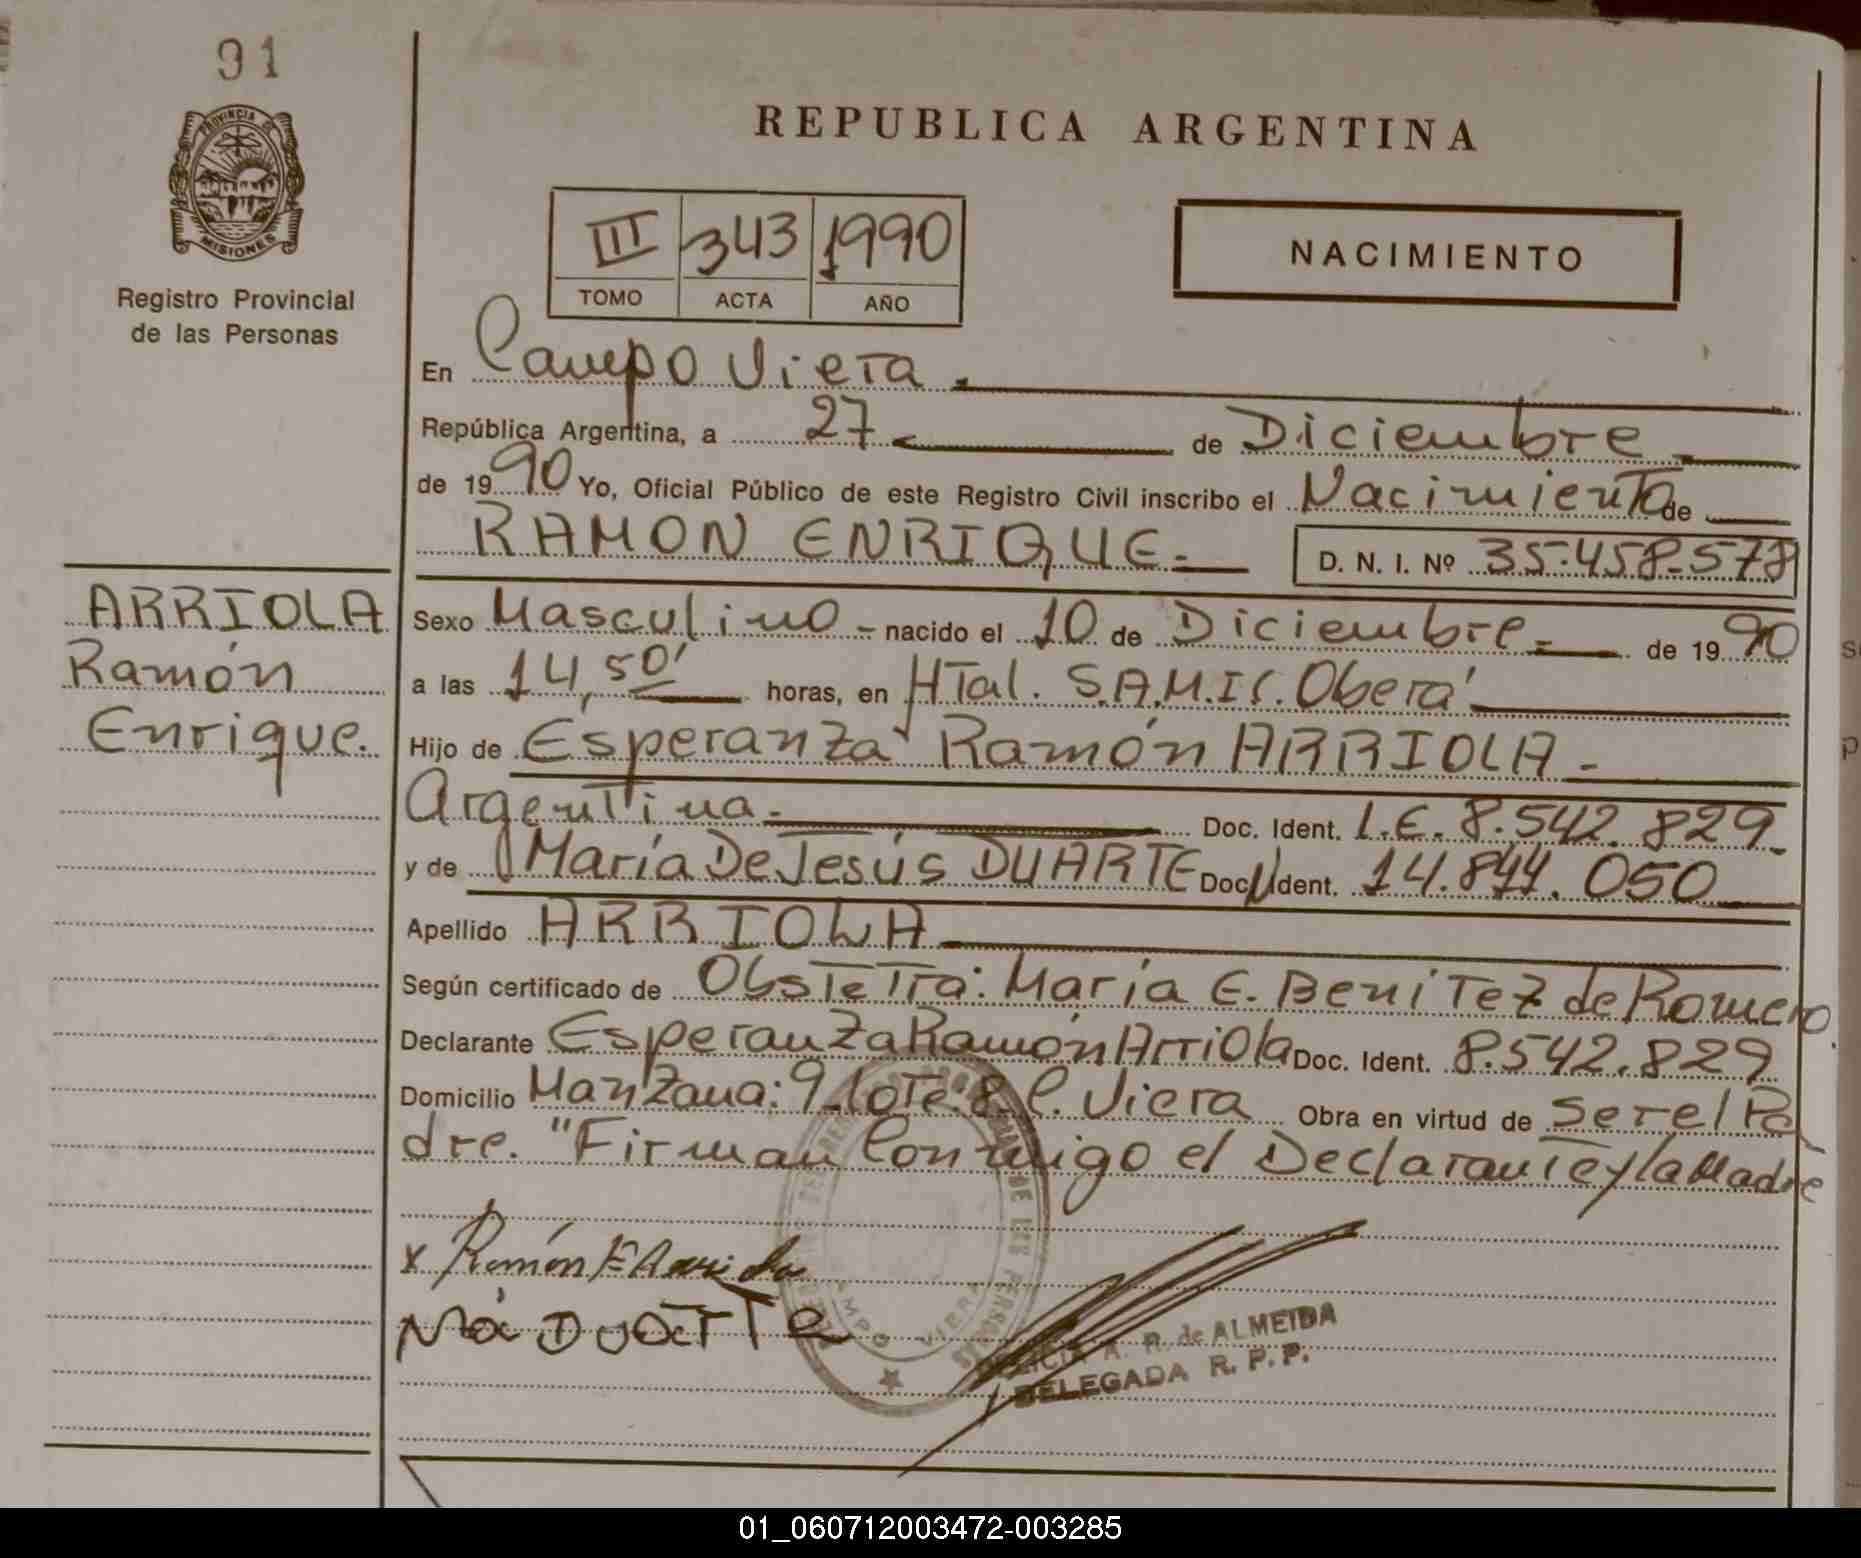 91
PROVINCIA DE
MISIONES
Registro Provincial
de las Personas
REPUBLICA ARGENTINA
III 343 1990
TOMO ACTA AÑO
NACIMIENTO
En Campo Viera.
República Argentina, a 27 de Diciembre
de 1990 Yo, Oficial Público de este Registro Civil inscribo el Nacimiento de
RAMON ENRIQUE.= D. N. I. Nº 35.458.578
ARRIOLA
Ramón
Enrique.
Sexo Masculino - nacido el 10 de Diciembre.= de 1990
a las 14,50' horas, en HTal. S.A.M.IC. Oberá
Hijo de Esperanza Ramón ARRIOLA -
Argentina.- Doc. Ident. L.E. 8.542.829.-
y de María De Jesús DUARTE Doc. Ident. 14.844.050
Apellido ARRIOLA
Según certificado de Obstetra: María E. Benitez de Romero.
Declarante Esperanza Ramón Arriola Doc. Ident. 8.542.829
Domicilio Manzana: 9-Lote 8. C. Viera Obra en virtud de ser el Pa
dre. "Firman Conmigo el Declarante y la Madre
x Ramón E Arriola
Ma Duarte
CAMPO VIERA
A. R. de ALMEIDA
DELEGADA R. P. P.
01_060712003472-003285